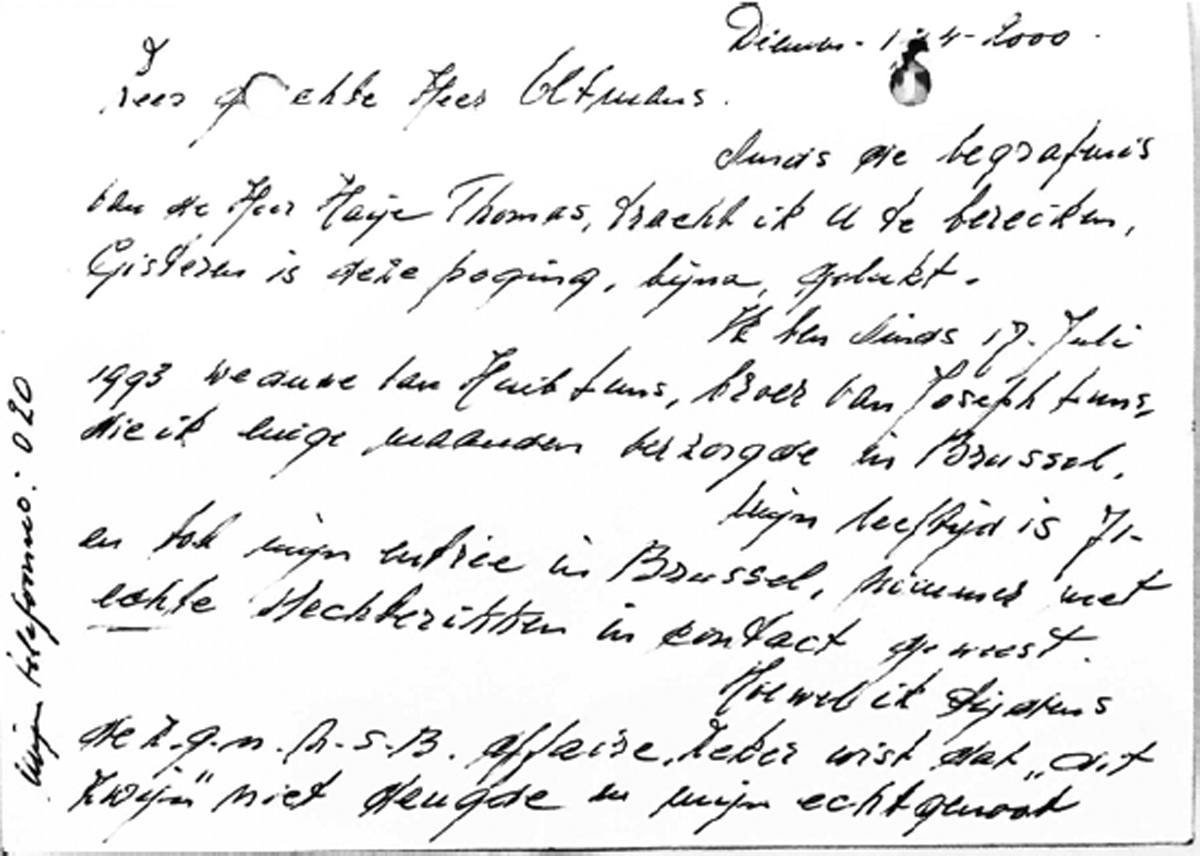 Diemen - 1 4 - 2000.
Zeer g echte Heer Oltmans.
Sinds de begrafenis
van de Heer Haije Thomas, tracht ik U te bereiken,
Gisteren is deze poging, bijna, gelukt.
Ik ben sinds 17. Juli
1993 weduwe van Huib Luns, broer van Joseph Luns,
die ik enige maanden verzorgde in Brussel.
Mijn leeftijd is 71-
en tot mijn entree in Brussel, nimmer met
echte slechteriken in contact geweest.
Hoewel ik tijdens
de z.g.n. N.S.B. affaire, zeker wist dat „dit
zwijn" niet deugde en mijn echtgenoot
Mijn telefoonno: 020